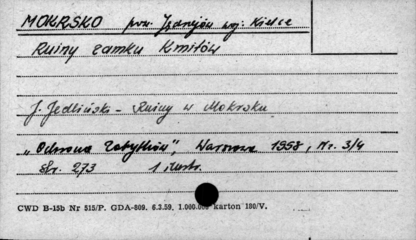 MOKRSKO pow. Jędrzejów woj. Kielce
Ruiny zamku Kmitów
J. Jedliński - Ruiny w Mokrsku
„Ochrona Zabytków", Warszawa 1958, Nr. 3/4
str. 273 1 ilustr.
CWD B-15b Nr 515/P. GDA-809. 6.3.59. 1.000.000 karton 180/V.